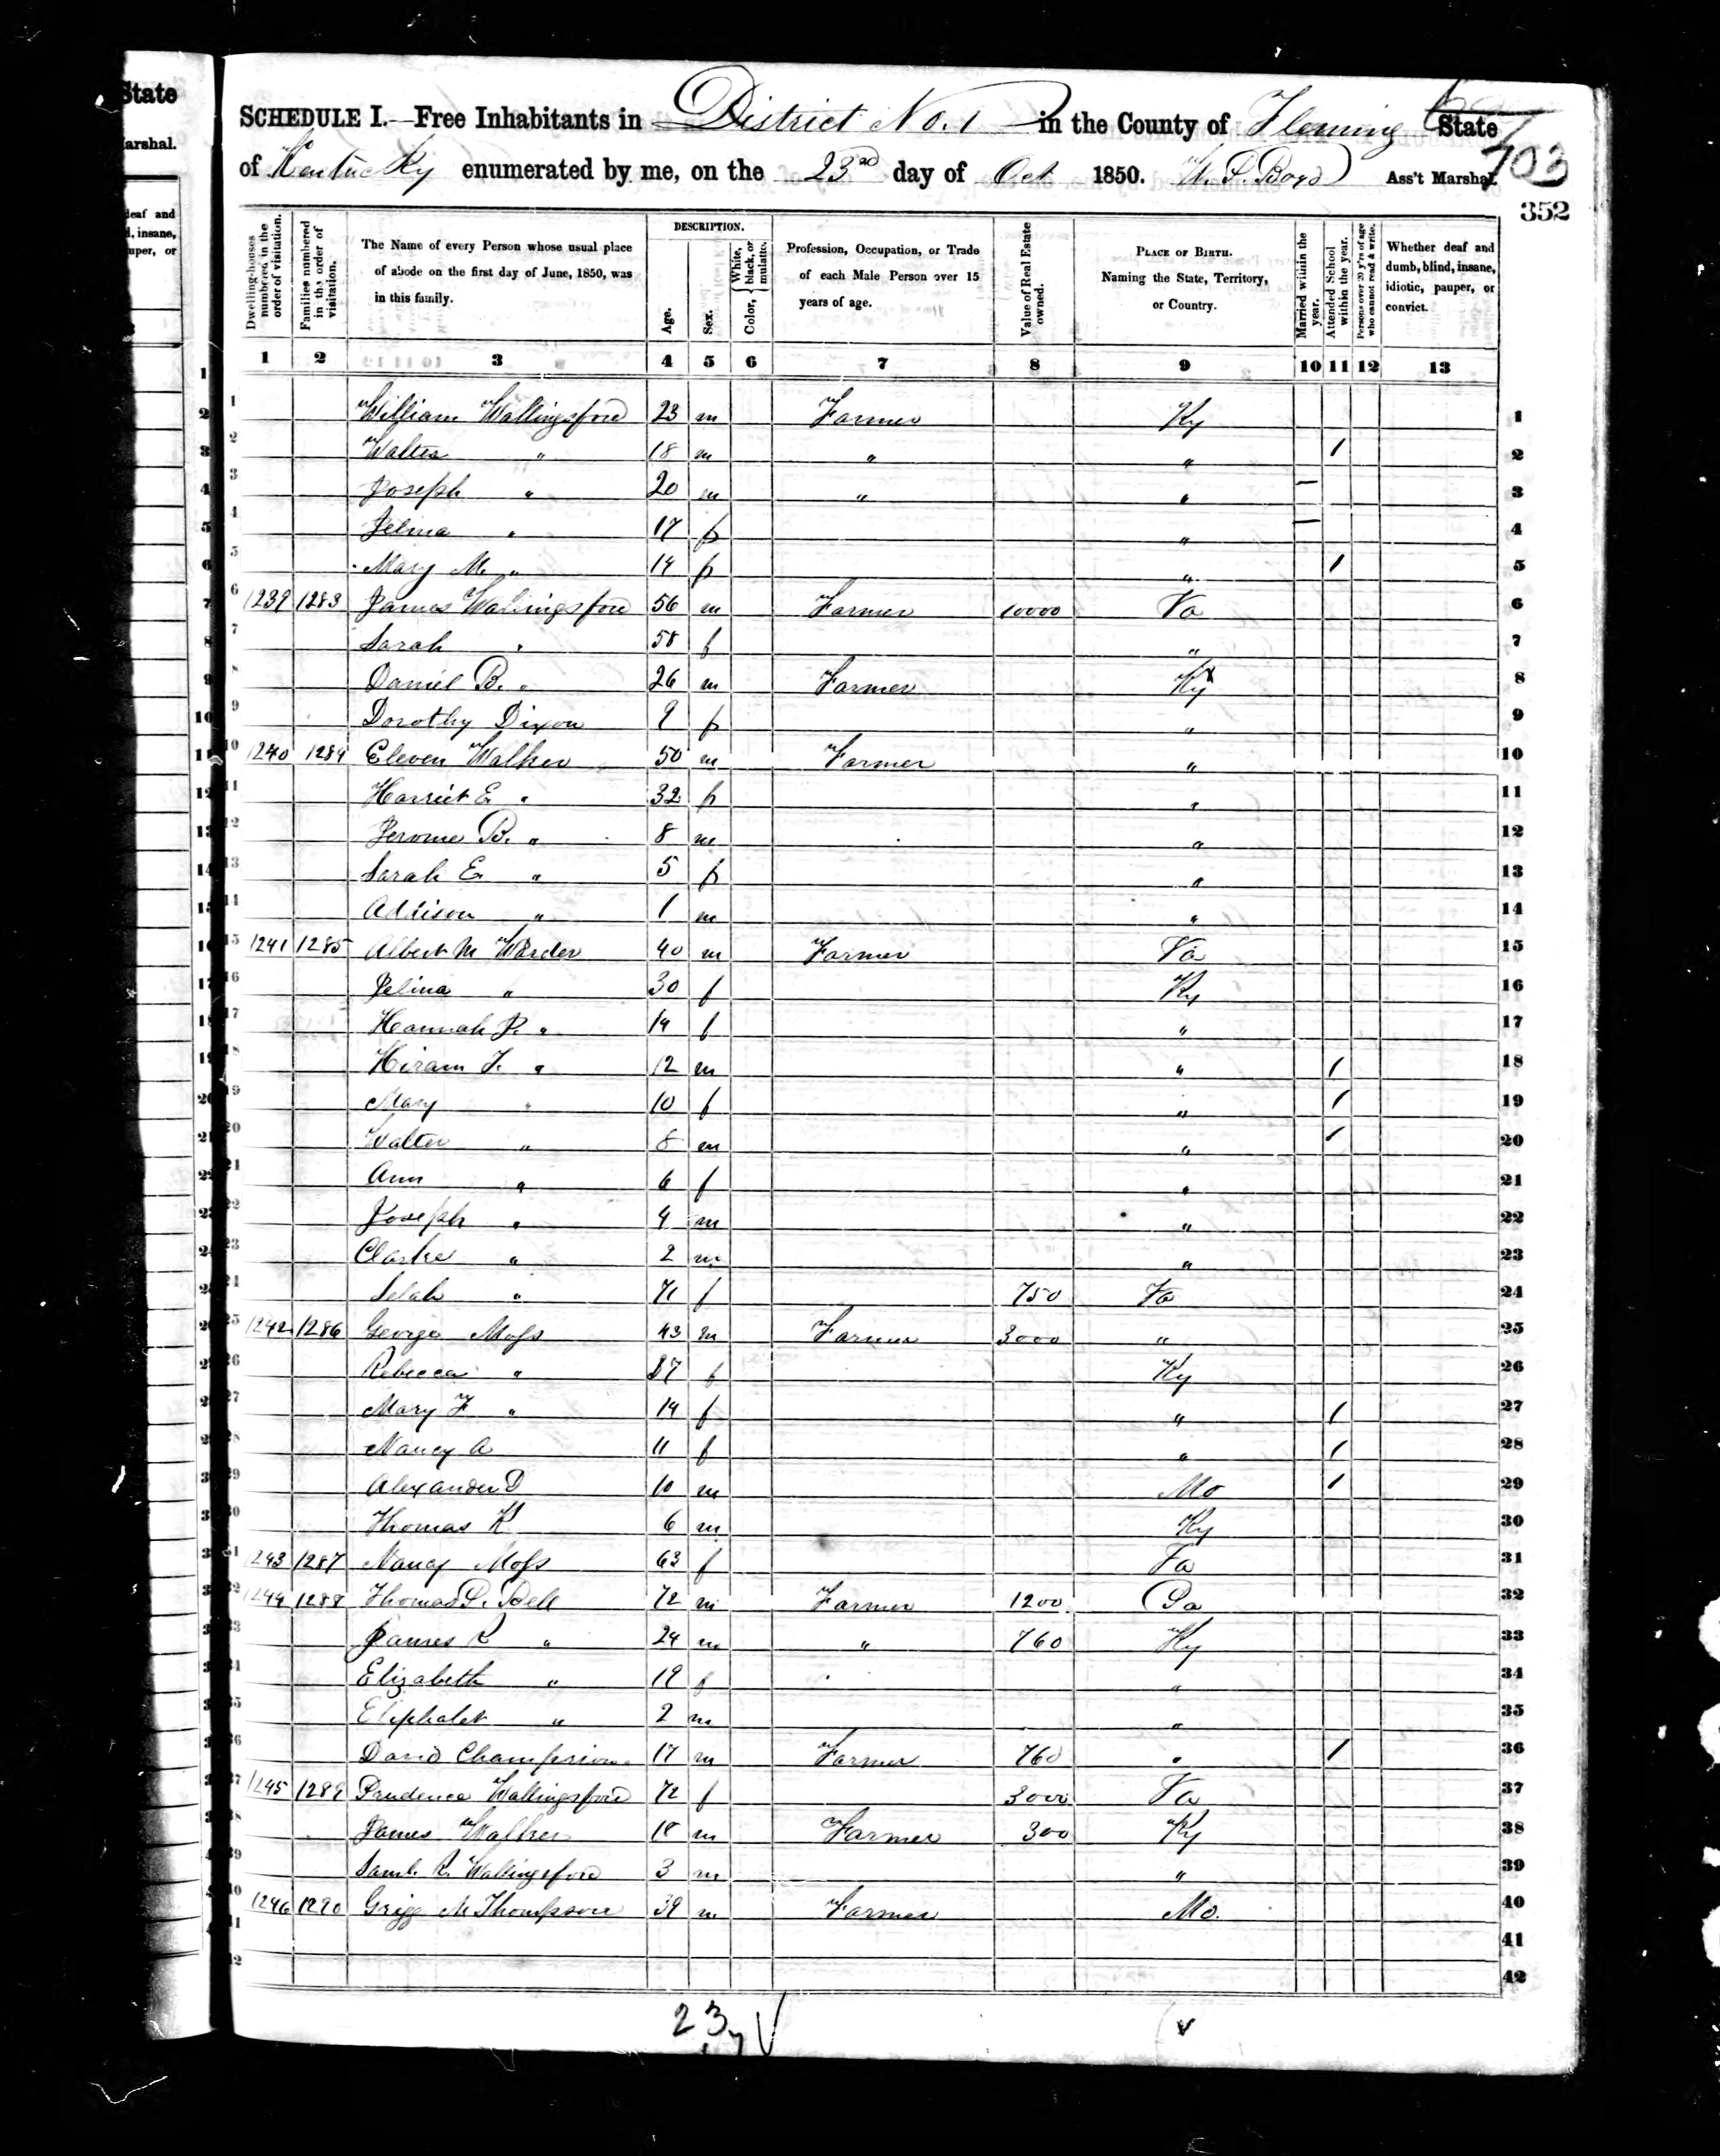 State
SCHEDULE I.—Free Inhabitants in District No. 1 in the County of Fleming State
of Kentucky enumerated by me, on the 23rd day of Oct 1850. Ass't Marshal.
703
352
arshal.
leaf and
l, insane,
uper, or
Dwelling-houses numbered in the order of visitation.
Families numbered in the order of visitation.
The Name of every Person whose usual place of abode on the first day of June, 1850, was in this family.
DESCRIPTION.
Age.
Sex.
Color, White, black, or mulatto.
Profession, Occupation, or Trade of each Male Person over 15 years of age.
Value of Real Estate owned.
PLACE OF BIRTH. Naming the State, Territory, or Country.
Married within the year.
Attended School within the year.
Persons over 20 y'rs of age who cannot read & write.
Whether deaf and dumb, blind, insane, idiotic, pauper, or convict.
1 2 3 4 5 6 7 8 9 10 11 12 13
1 William Wallingsford 23 m Farmer Ky 1
2 Walter " 18 m " " / 2
3 Joseph " 20 m " " — 3
4 " 17 f " — 4
5 Mary M. " 14 f " / 5
6 1239 1283 James Wallingsford 56 m Farmer 10000 Va 6
7 Sarah " 58 f " 7
8 Daniel B. " 26 m Farmer Ky 8
9 Dorothy Dixon 9 f " 9
10 1240 1284 Eleven Walker 50 m Farmer " 10
11 Harriet E. " 32 f " 11
12 Jerome B. " 8 m " 12
13 Sarah E. " 5 f " 13
14 Addison " 1 m " 14
15 1241 1285 Albert M Warder 40 m Farmer Va 15
16 " 30 f Ky 16
17 Hannah " 14 f " 17
18 Hiram T. " 12 m " / 18
19 Mary " 10 f " / 19
20 Walter " 8 m " / 20
21 Ann " 6 f " 21
22 Joseph " 4 m " 22
23 Clarke " 2 m " 23
24 Selah " 71 f 750 Va 24
25 1242 1286 George Moss 43 m Farmer 3000 " 25
26 Rebecca " 37 f Ky 26
27 Mary F " 14 f " / 27
28 Nancy A 11 f " / 28
29 Alexander D 10 m Mo / 29
30 Thomas K 6 m Ky 30
31 1243 1287 Nancy Moss 63 f Va 31
32 1244 1288 Thomas Bell 72 m Farmer 1200 Pa 32
33 James R " 24 m " 760 Ky 33
34 Elizabeth " 19 f " 34
35 Eliphalet " 2 m " 35
36 David Champion 17 m Farmer 760 " / 36
37 1245 1289 Prudence Wallingsford 72 f 3000 Va 37
38 James Walker 18 m Farmer 300 Ky 38
39 Saml. R. Wallingsford 3 m " 39
40 1246 1290 Grigg M Thompson 39 m Farmer Mo. 40
41 41
42 42
23